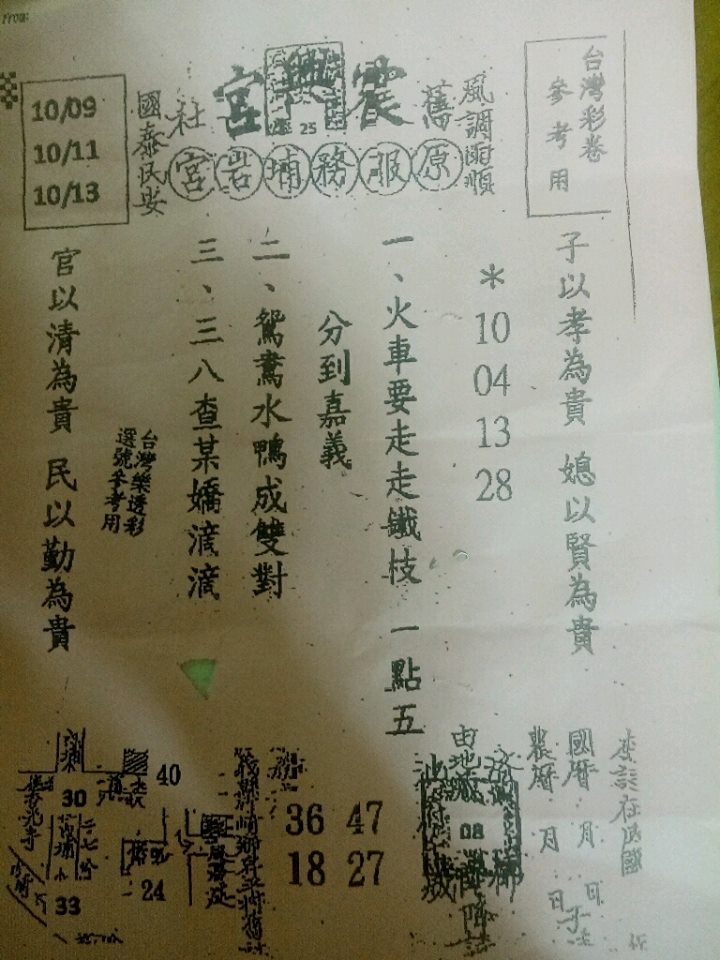 台灣彩卷
參考用
風調雨順
舊
震興宮
25
社
原服務埔岩宮
國泰民安
10/09
10/11
10/13
子以孝為貴 媳以賢為貴
*10 04 13 28
一、火車要走走鐵枝 一點五
分到嘉義
二、鴛鴦水鴨成雙對
三、三八查某嬌滴滴
台灣樂透彩
選號參考用
官以清為貴 民以勤為貴
國曆 月 日
農曆 月 日
08
36 47
18 27
40
30
24
33